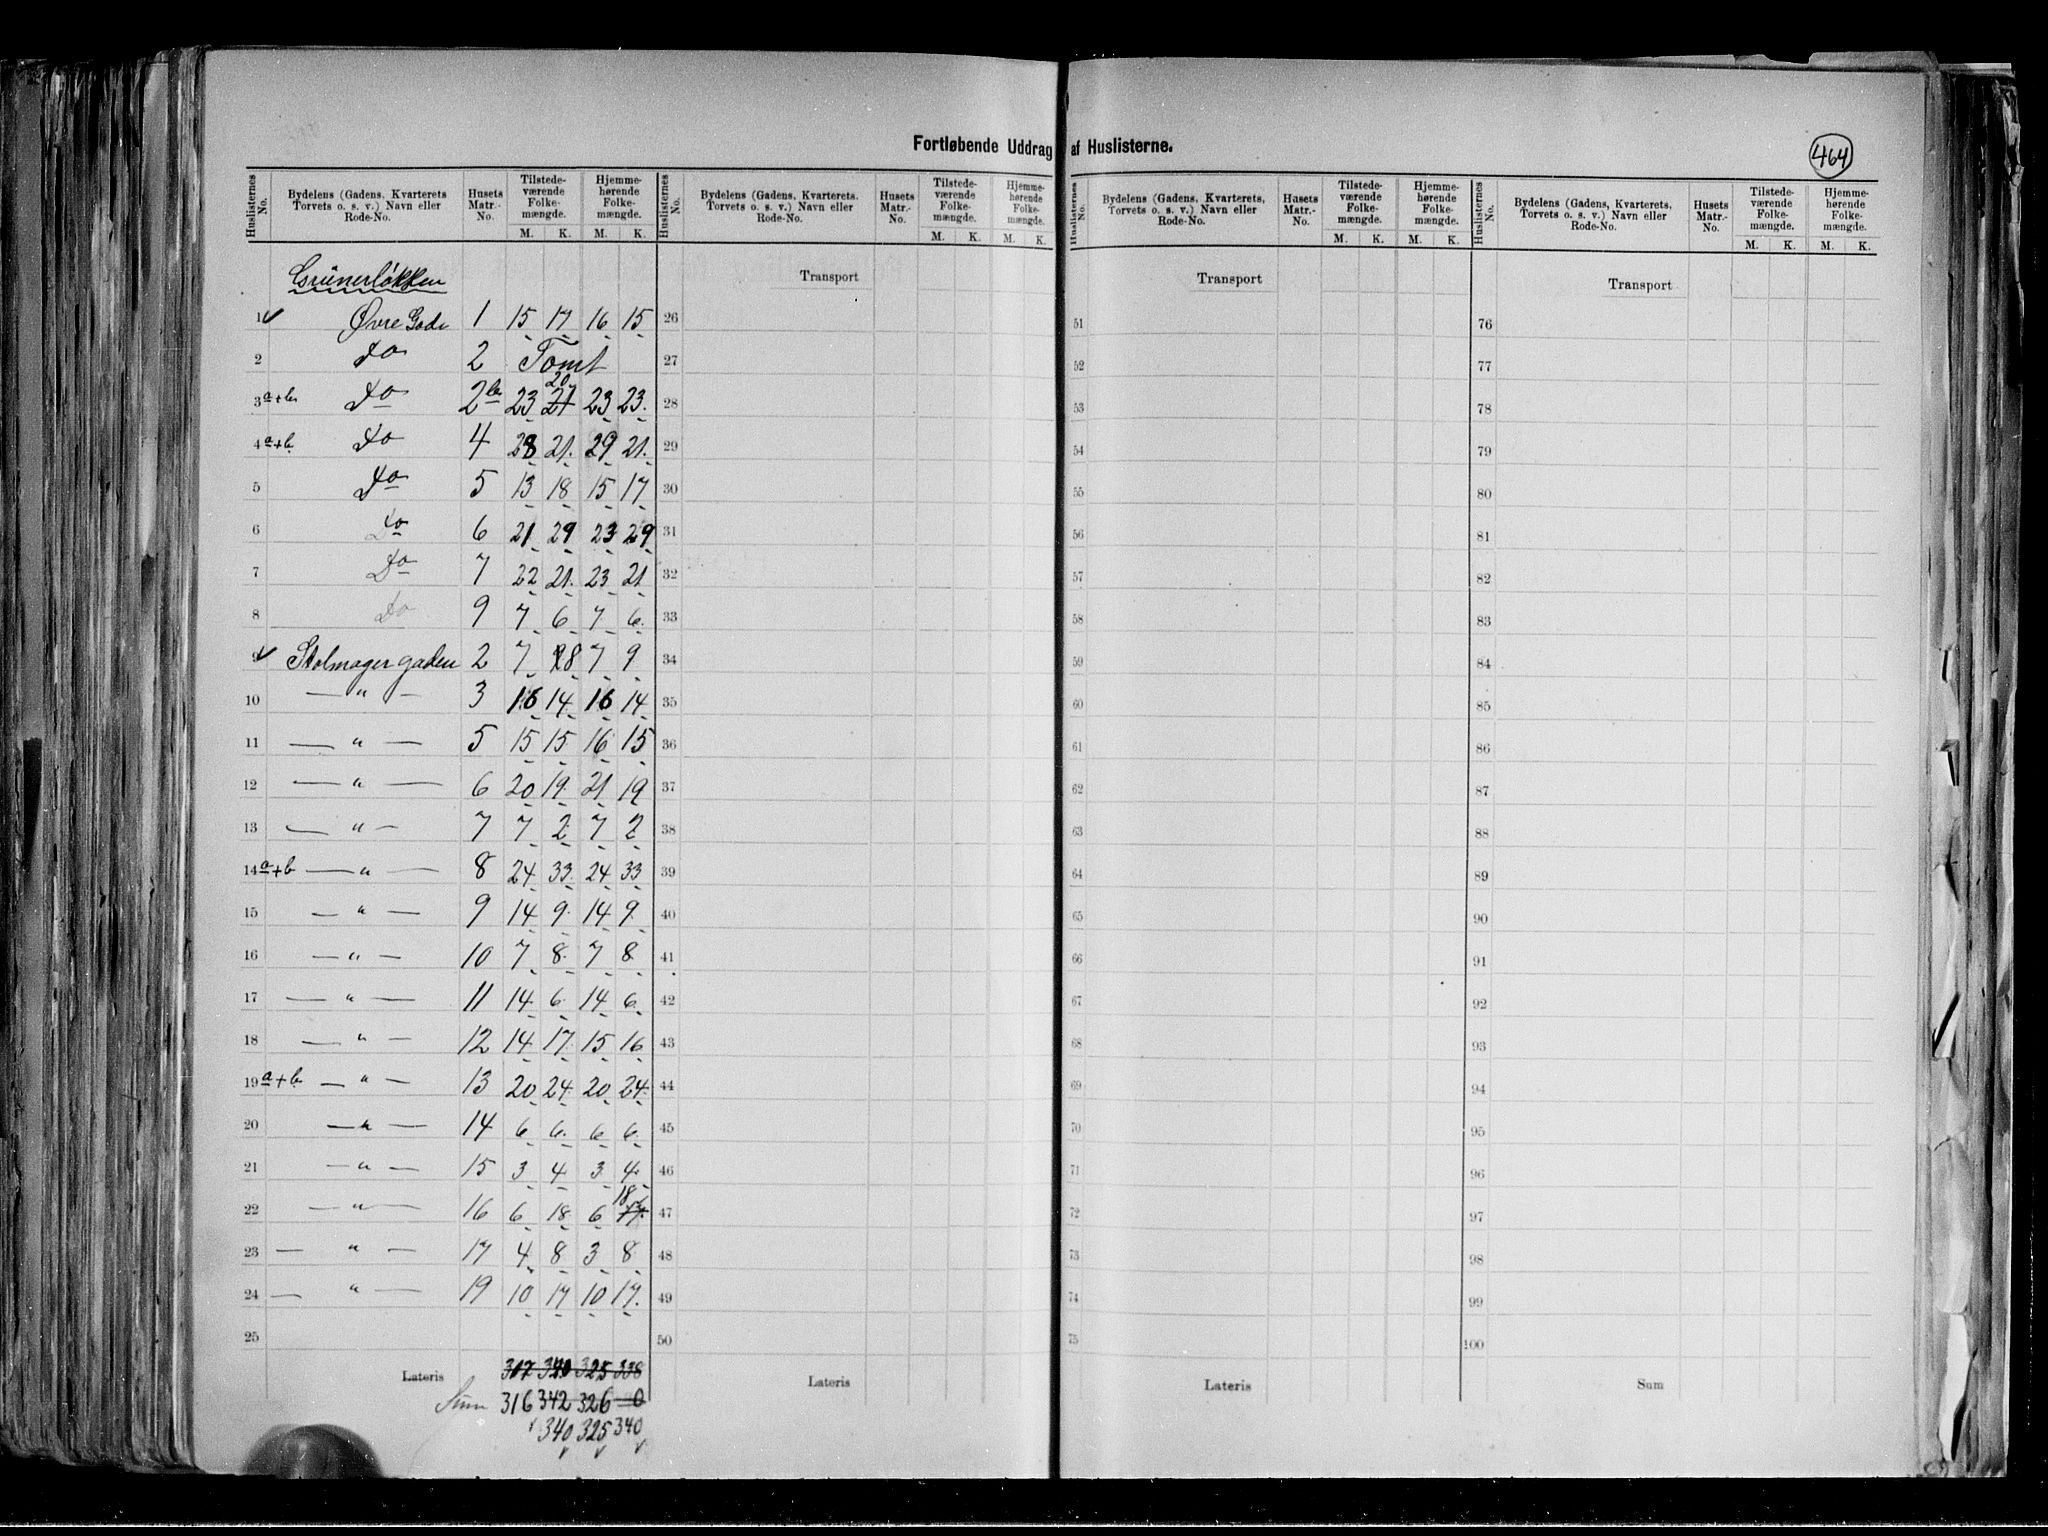 Fortløbende Uddrag af Huslisterne.
464
Huslisternes No. Bydelens (Gadens, Kvarterets Torvets o. s. v.) Navn eller Rode-No. Husets Matr.-No. Tilstedeværende Folkemængde. Hjemmehørende Folkemængde. M. K. M. K.
Huslisternes No. Bydelens (Gadens, Kvarterets, Torvets o. s. v.) Navn eller Rode-No. Husets Matr.-No. Tilstedeværende Folkemængde. Hjemmehørende Folkemængde. M. K. M. K.
Huslisternes No. Bydelens (Gadens, Kvarterets, Torvets o. s. v.) Navn eller Rode-No. Husets Matr.-No. Tilstedeværende Folkemængde. Hjemmehørende Folkemængde. M. K. M. K.
Huslisternes No. Bydelens (Gadens, Kvarterets, Torvets o. s. v.) Navn eller Rode-No. Husets Matr.-No. Tilstedeværende Folkemængde. Hjemmehørende Folkemængde. M. K. M. K.
Grünerløkken
1 Øvre Gade 1 15 17 16 15
2 Do 2 Tomt
20
3 a+b Do 2b 23 21 23 23.
4 a+b Do 4 28 21. 29 21.
5 Do 5 13 18 15 17
6 Do 6 21 29 23 29
7 Do 7 22 21. 23 21
8 Do 9 7 6 7 6.
9 Stolmagergaden 2 7 8 7 9
10 — " — 3 16 14. 16 14
11 — " — 5 15 15 16 15
12 — " — 6 20 19. 21 19
13 — " — 7 7 2 7 2
14 a+b — " — 8 24 33 24 33
15 — " — 9 14 9. 14 9.
16 — " — 10 7 8. 7 8
17 — " — 11 14 6. 14 6.
18 — " — 12 14 17 15 16
19 a+b — " — 13 20 24. 20 24.
20 — " — 14 6 6. 6 6.
21 — " — 15 3 4 3 4.
18
22 — " — 16 6 18 6 17.
23 — " — 17 4 8 3 8
24 — " — 19 10 17 10 17.
25
Lateris 317 340 325 338
Sum 316 342 326 — 0
340 325 340
Transport
26
27
28
29
30
31
32
33
34
35
36
37
38
39
40
41
42
43
44
45
46
47
48
49
50
Lateris
Transport
51
52
53
54
55
56
57
58
59
60
61
62
63
64
65
66
67
68
69
70
71
72
73
74
75
Lateris
Transport
76
77
78
79
80
81
82
83
84
85
86
87
88
89
90
91
92
93
94
95
96
97
98
99
100
Sum